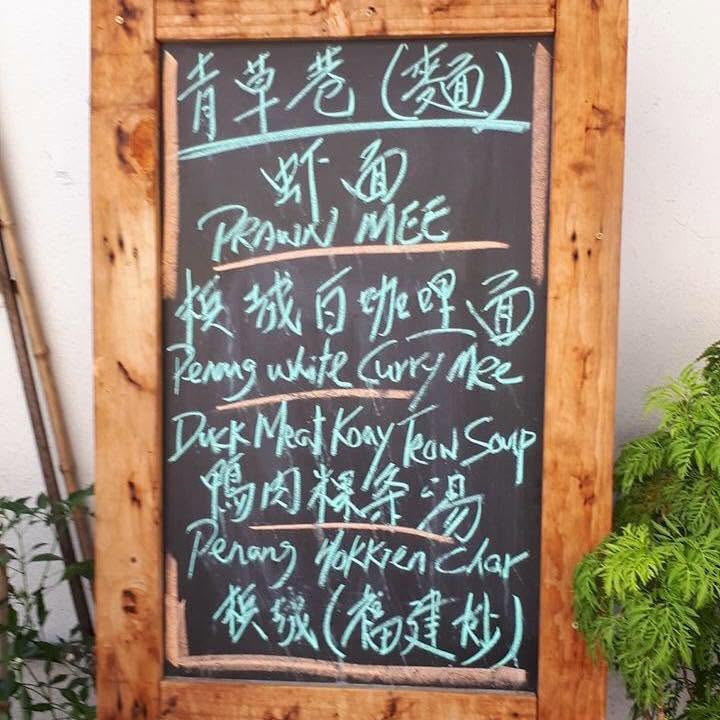 青草巷(麵)
虾面
PRAWN MEE
槟城白咖哩面
Penang white Curry Mee
Duck Meat Koay Teow Soup
鴨肉粿条湯
Penang Hokkien Char
槟城(福建炒)